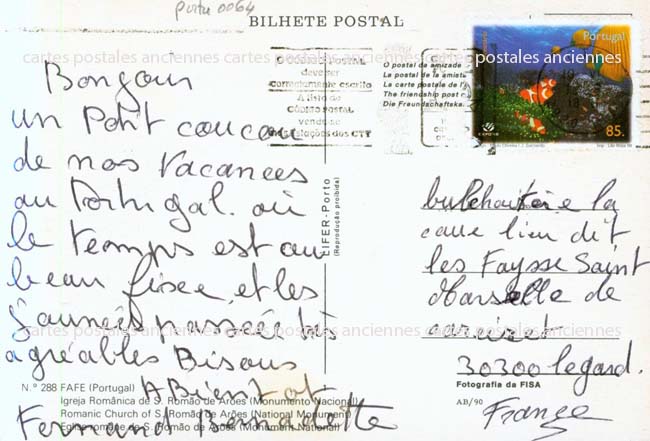 portu 0064
BILHETE POSTAL
cartes postales anciennes cartes postales anciennes cartes postales anciennes
Portugal
85.
O CÓDIGO POSTAL
deve ser
correctamente escrito
A lista do
CÓDIGO POSTAL
vende-se
nas estações dos CTT
O postal da amizade
La postal de la amista
La carte postale de l'a
The friendship post c
Die Freundschaftska
Bonjour
un Petit coucou
de nos Vacances
au Portugal. où
le temps est au
beau fixe, et les
Journées passées très
agréables Bisous
A Bientot
Fernand Bernadette
EIFER-Porto
(Reprodução proibida)
la
cave lieu dit
les Faysse Saint
de
30300
France
cartes postales anciennes cartes postales anciennes cartes postales anciennes
N.º 288 FAFE (Portugal)
Igreja Românica de S. Romão de Arões (Monumento Nacional)
Romanic Church of S. Romão de Arões (National Monument)
Eglise romane de S. Romão de Arões (Monument National)
Fotografia da FISA
AB/90